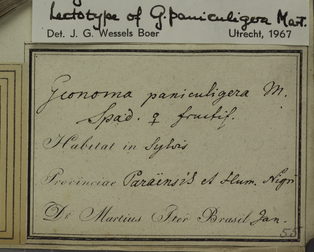 Lectotype of G. paniculigera Mart.
Det. J. G. Wessels Boer Utrecht, 1967
Geonoma paniculigera M.
Spad. ♀ fructif.
Habitat in Sylvis
Provinciae Paraënsis et flum. Nigri
Dr Martius Iter Brasil Jan.